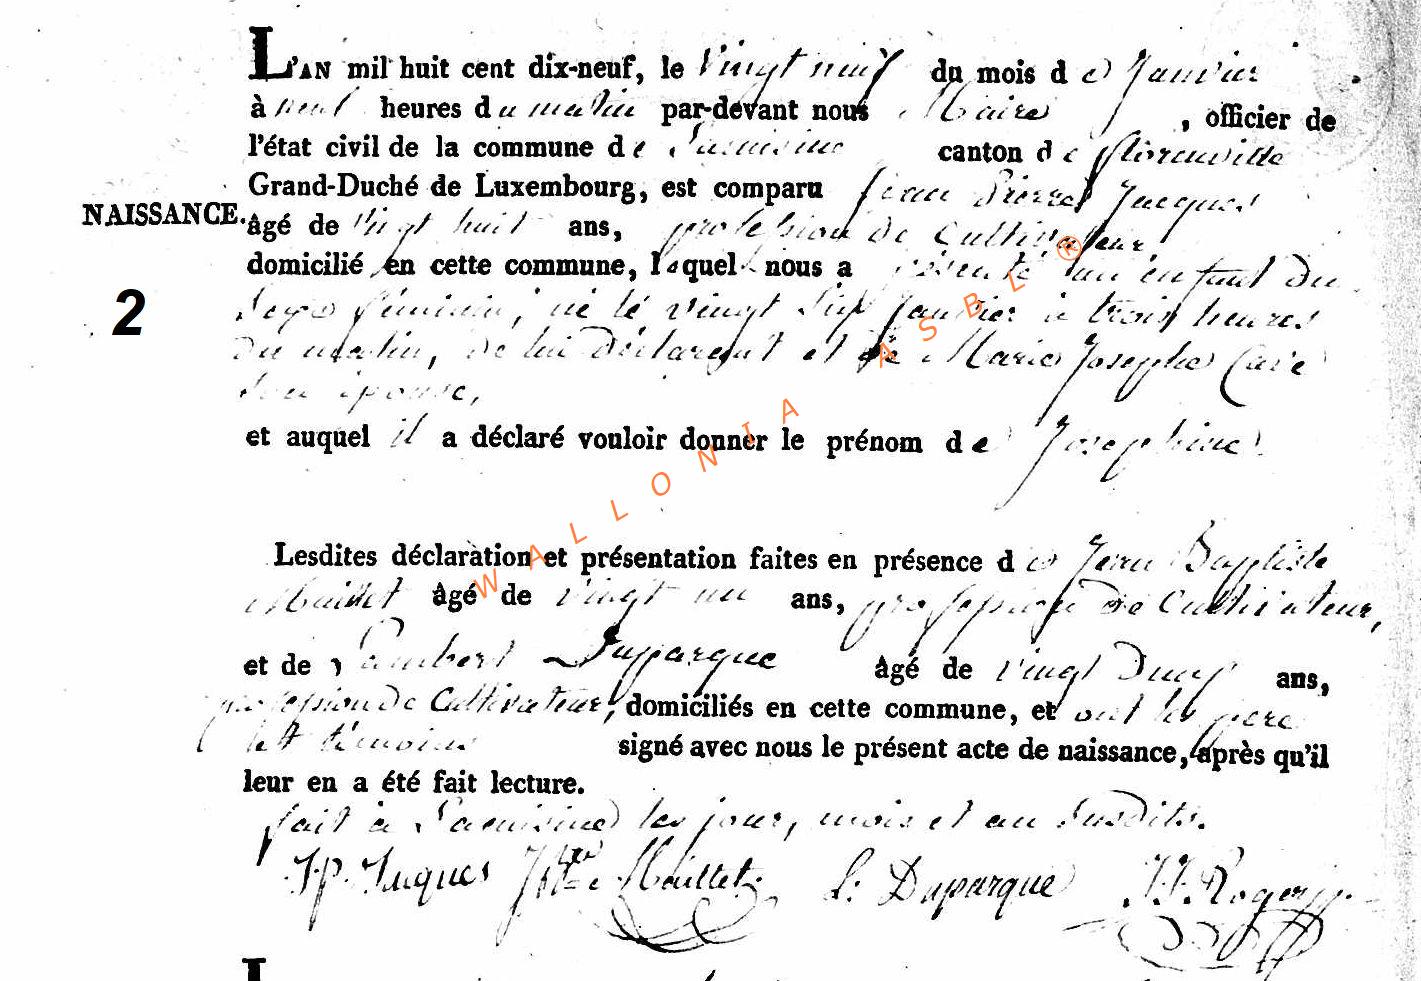 L'AN mil huit cent dix-neuf, le Vingt neuf du mois de Janvier
à neuf heures du matin par-devant nous Maire , officier de
l'état civil de la commune de canton de florenville
Grand-Duché de Luxembourg, est comparu Jean Pierre Jacques
NAISSANCE. âgé de vingt huit ans, profession de Cultivateur
domicilié en cette commune, lequel nous a présenté un enfant du
2
Sexe féminin, né le vingt Janvier à trois heures
du matin, de lui déclarant et de Marie Josephe
Son épouse,
et auquel il a déclaré vouloir donner le prénom de Josephine
Lesdites déclaration et présentation faites en présence de Jean Baptiste
Maillet âgé de vingt un ans, profession de Cultivateur,
et de Lambert Duparque âgé de vingt Deux ans,
profession de Cultivateur, domiciliés en cette commune, et ont les père
et témoins signé avec nous le présent acte de naissance, après qu'il
leur en a été fait lecture.
fait à les jour, mois et an Susdits.
J.P. Jaques Maillet L: Duparque J.J. Roger
WALLONIA ASBL ®
L